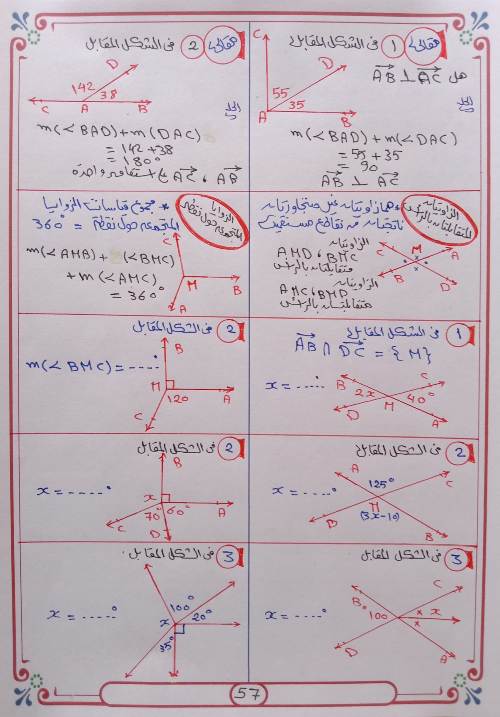 مثال 1 فى الشكل المقابل
هل AB ⊥ AC
الحل
C
D
55
35
A
B
m(<BAD) + m(<DAC)
= 55 + 35
= 90
AB ⊥ AC
مثال 2 فى الشكل المقابل
D
142
38
C
A
B
الحل
m(<BAD) + m(DAC)
= 142 + 38
= 180°
AB ، AC على استقامة واحدة
الزاويتان المتقابلتان بالرأس
هما زاويتان غير متجاورتان
ناتجتان من تقاطع مستقيمين
الزاويتان
AMD ، BMC
متقابلتان بالرأس
الزاويتان
AMC ، BMD
متقابلتان بالرأس
B
M
C
D
A
الزوايا المتجمعة حول نقطة
* مجموع قياسات الزوايا
المتجمعة حول نقطة = 360°
m(<AMB) + (<BMC)
+ m(<AMC)
= 360°
C
M
B
A
1 فى الشكل المقابل
AB ∩ DC = {M}
x = ----°
B
C
2x
40°
M
D
A
2 فى الشكل المقابل
m(<BMC) = ----°
B
M
120
A
C
2 فى الشكل المقابل
x = ----°
A
125°
C
M
(3x-10)
D
B
2 فى الشكل المقابل
x = ----°
B
x
70°
60°
A
C
D
3 فى الشكل المقابل
x = ----°
C
B
100
x
x
x
D
A
3 فى الشكل المقابل
x = ----°
100°
20°
x
35°
57